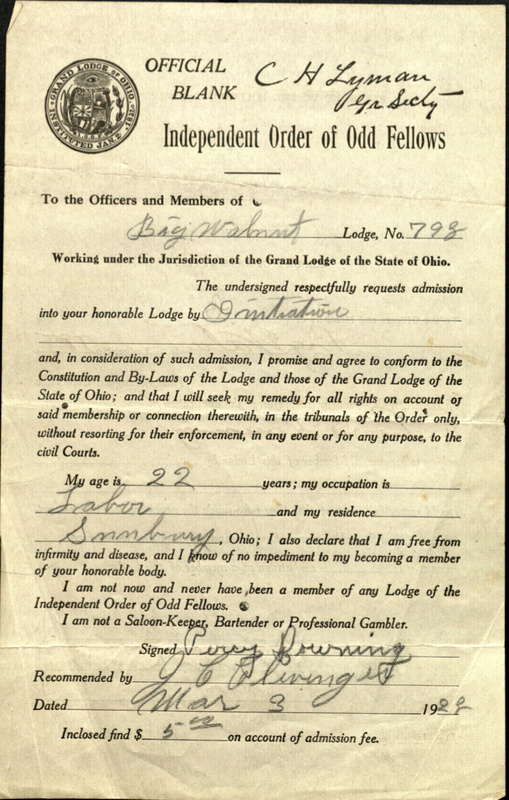 GRAND LODGE OF OHIO
INSTITUTED JAN. 2 1832
OFFICIAL
BLANK
C H Lyman
Gr Secty
Independent Order of Odd Fellows
To the Officers and Members of
Big Walnut Lodge, No. 792
Working under the Jurisdiction of the Grand Lodge of the State of Ohio.
The undersigned respectfully requests admission
into your honorable Lodge by Initiation
and, in consideration of such admission, I promise and agree to conform to the
Constitution and By-Laws of the Lodge and those of the Grand Lodge of the
State of Ohio; and that I will seek my remedy for all rights on account of
said membership or connection therewith, in the tribunals of the Order only,
without resorting for their enforcement, in any event or for any purpose, to the
civil Courts.
My age is 22 years; my occupation is
Labor and my residence
Sunbury, Ohio; I also declare that I am free from
infirmity and disease, and I know of no impediment to my becoming a member
of your honorable body.
I am not now and never have been a member of any Lodge of the
Independent Order of Odd Fellows.
I am not a Saloon-Keeper, Bartender or Professional Gambler.
Signed Percy Downing
Recommended by J C Clevenger
Dated Mar 3 1922
Inclosed find $ 5 00 on account of admission fee.